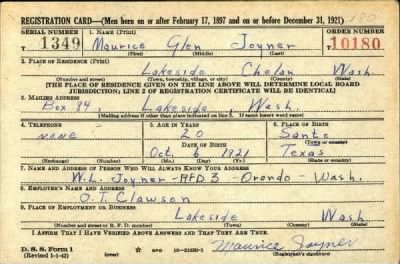 REGISTRATION CARD—(Men born on or after February 17, 1897 and on or before December 31, 1921)
SERIAL NUMBER 1. NAME (Print) ORDER NUMBER
T 1349 Maurice Glen Joyner T 10180
(First) (Middle) (Last)
2. PLACE OF RESIDENCE (Print)
Lakeside Chelan Wash.
(Number and street) (Town, township, village, or city) (County) (State)
[THE PLACE OF RESIDENCE GIVEN ON THE LINE ABOVE WILL DETERMINE LOCAL BOARD
JURISDICTION; LINE 2 OF REGISTRATION CERTIFICATE WILL BE IDENTICAL]
3. MAILING ADDRESS
Box 84, Lakeside, Wash.
[Mailing address if other than place indicated on line 2. If same insert word same]
4. TELEPHONE 5. AGE IN YEARS 6. PLACE OF BIRTH
none 20 Santo
DATE OF BIRTH (Town or county)
Oct 6 1921 Texas
(Exchange) (Number) (Mo.) (Day) (Yr.) (State or country)
7. NAME AND ADDRESS OF PERSON WHO WILL ALWAYS KNOW YOUR ADDRESS
W. L. Joyner - RFD 3 - Orondo - Wash.
8. EMPLOYER'S NAME AND ADDRESS
O. T. Clawson
9. PLACE OF EMPLOYMENT OR BUSINESS
Lakeside Wash
(Number and street or R. F. D. number) (Town) (County) (State)
I AFFIRM THAT I HAVE VERIFIED ABOVE ANSWERS AND THAT THEY ARE TRUE.
D. S. S. Form 1 GPO 16—21630-1 Maurice Joyner
(Revised 1-1-42) (over) (Registrant's signature)